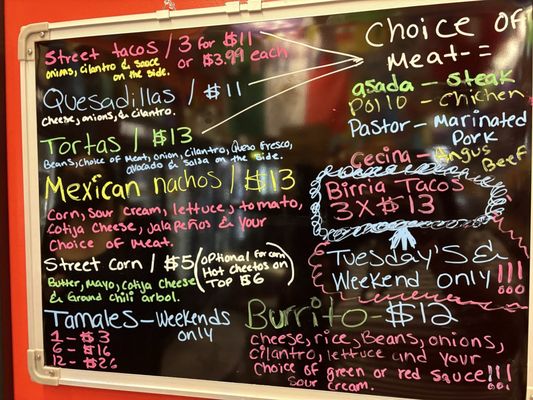 Street tacos / 3 for $11
or $3.99 each
onions, cilantro & sauce
on the side.
Quesadillas / $11
cheese, onions, & cilantro.
Tortas / $13
Beans, choice of meat, onion, cilantro, Queso fresco,
avocado & Salsa on the side.
Mexican nachos / $13
Corn, Sour cream, lettuce, tomato,
cotija cheese, jalapeños & your
choice of meat.
Street Corn / $5 (optional for corn
Hot cheetos on
Top $6)
Butter, Mayo, cotija cheese
& Ground Chili arbol.
Tamales - Weekends
only
1 - $3
6 - $16
12 - $26
Choice of
Meat - =
asada - Steak
Pollo - Chicken
Pastor - Marinated
Pork
Cecina - Angus
Beef
Birria Tacos
3 X $13
Tuesday's &
Weekend only!!!
Burrito - $12
cheese, rice, Beans, onions,
cilantro, lettuce and your
choice of green or red sauce!!!
Sour cream.